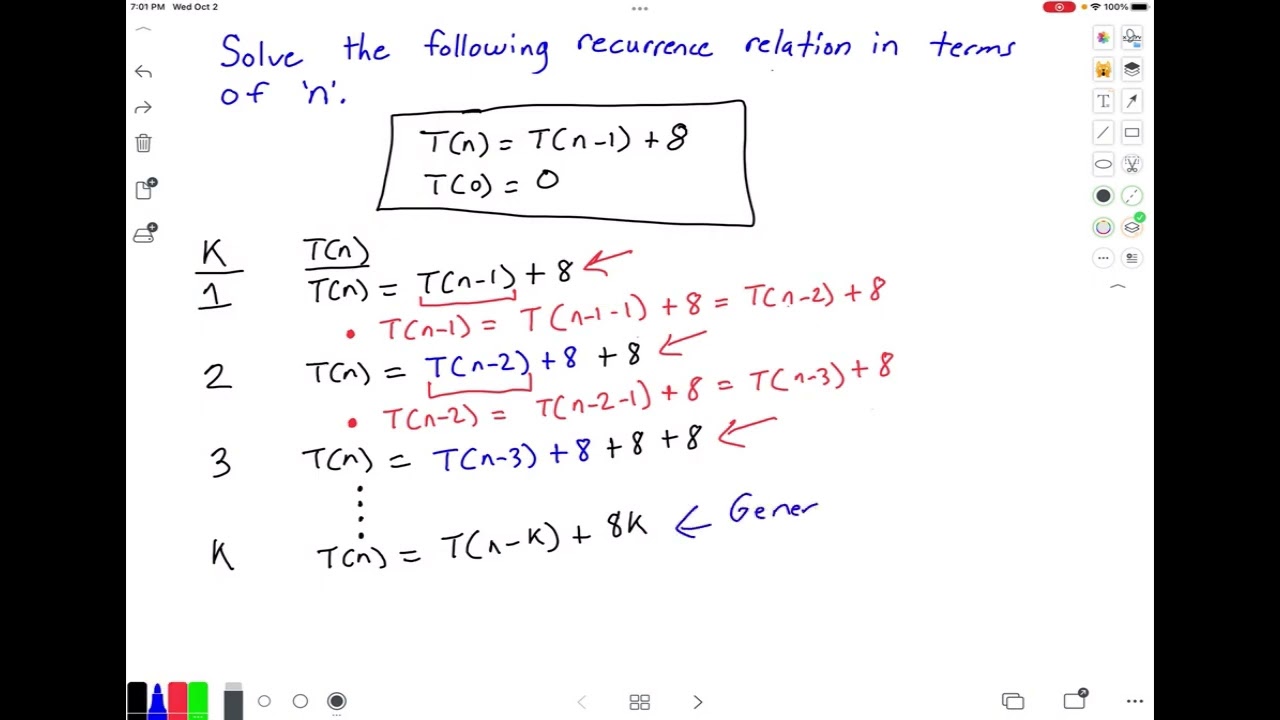 7:01 PM Wed Oct 2
100%
Solve the following recurrence relation in terms
of 'n'.
T(n) = T(n-1) + 8
T(0) = 0
K T(n)
1 T(n) = T(n-1) + 8
• T(n-1) = T(n-1-1) + 8 = T(n-2) + 8
2 T(n) = T(n-2) + 8 + 8
• T(n-2) = T(n-2-1) + 8 = T(n-3) + 8
3 T(n) = T(n-3) + 8 + 8 + 8
K T(n) = T(n-K) + 8K ← Gener